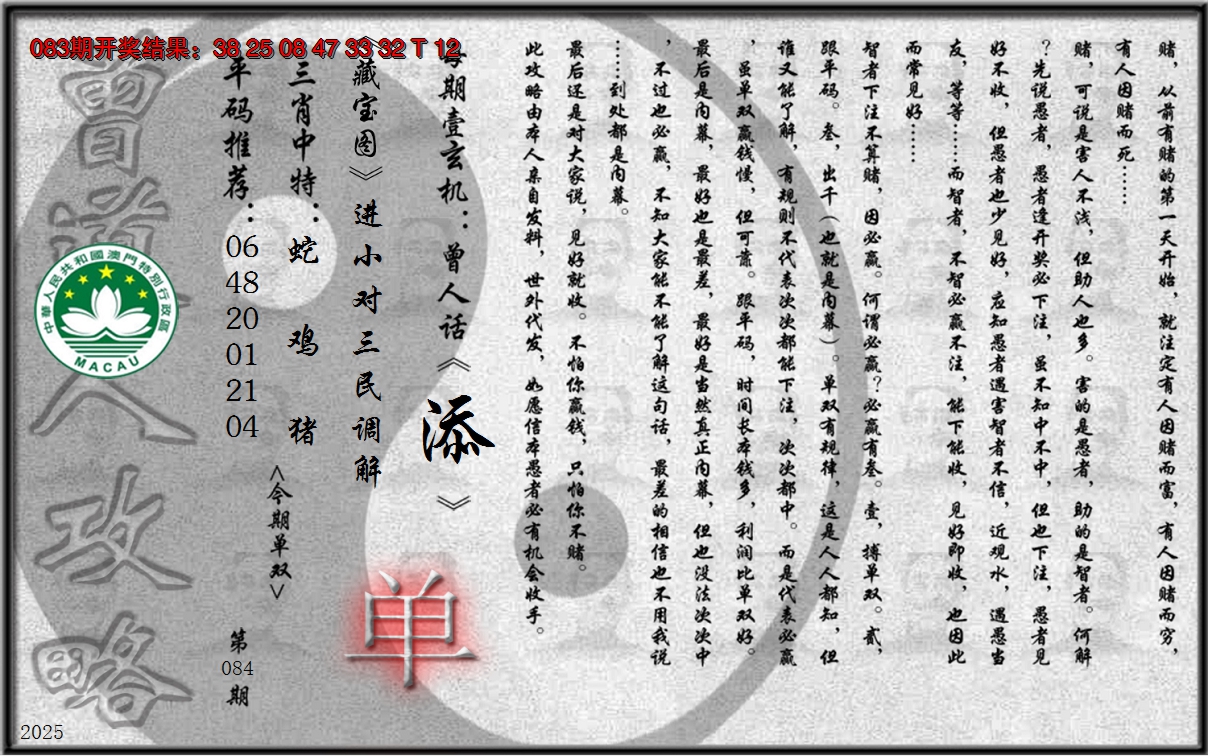 083期开奖结果：38 25 08 47 33 32 T 12
赌，从前有赌的第一天开始，就注定有人因赌而富，有人因赌而穷，
有人因赌而死……
赌，可说是害人不浅，但助人也多。害的是愚者，助的是智者。何解
？先说愚者，愚者逢开奖必下注，虽不知中不中，但也下注，愚者见
好不收，但愚者也少见好，应知愚者遇害智者不信，近观水，遇愚当
友，等等……而智者，不智必赢不注，能下能收，见好即收，也因此
而常见好……
智者下注不算赌，因必赢。何谓必赢？必赢有叁。壹，搏单双。贰，
跟平码。叁，出千（也就是内幕）。单双有规律，这是人人都知，但
谁又能了解，有规则不代表次次都能下注，次次都中。而是代表必赢
，虽单双赢钱慢，但可靠。跟平码，时间长本钱多，利润比单双好。
最后是内幕，最好也是最差，最好是当然真正内幕，但也没法次次中
，不过也必赢，不知大家能不能了解这句话，最差的相信也不用我说
……到处都是内幕。
最后还是对大家说，见好就收。不怕你赢钱，只怕你不赌。
此攻略由本人亲自发料，世外代发，如愿信本愚者必有机会收手。
每期壹玄机：曾人话《添》
《藏宝图》进小对三民调解
三肖中特：蛇 鸡 猪
<今期单双>
单
平码推荐：
06
48
20
01
21
04
第
084
期
曾道人攻略
中華人民共和國澳門特別行政區
MACAU
2025